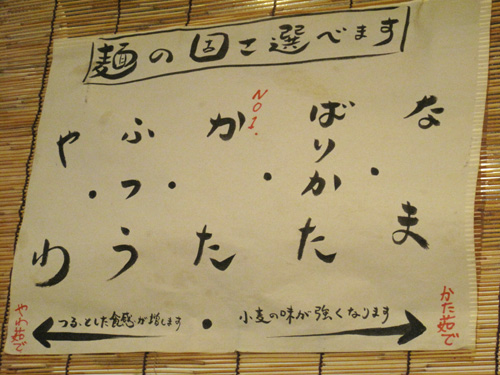 麺の固さ選べます
なま
・
ばりかた
・
NO1.
かた
・
ふつう
・
やわ
かた茹で
小麦の味が強くなります
・
つるっとした食感が増します
やわ茹で